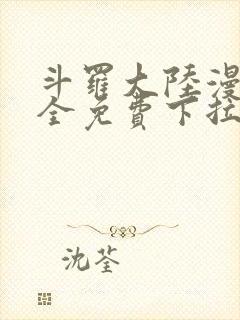 斗羅大陸漫
全免費下拉
沈荃